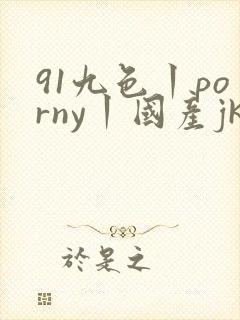 91九色丨po
rny丨國産jk
於是之